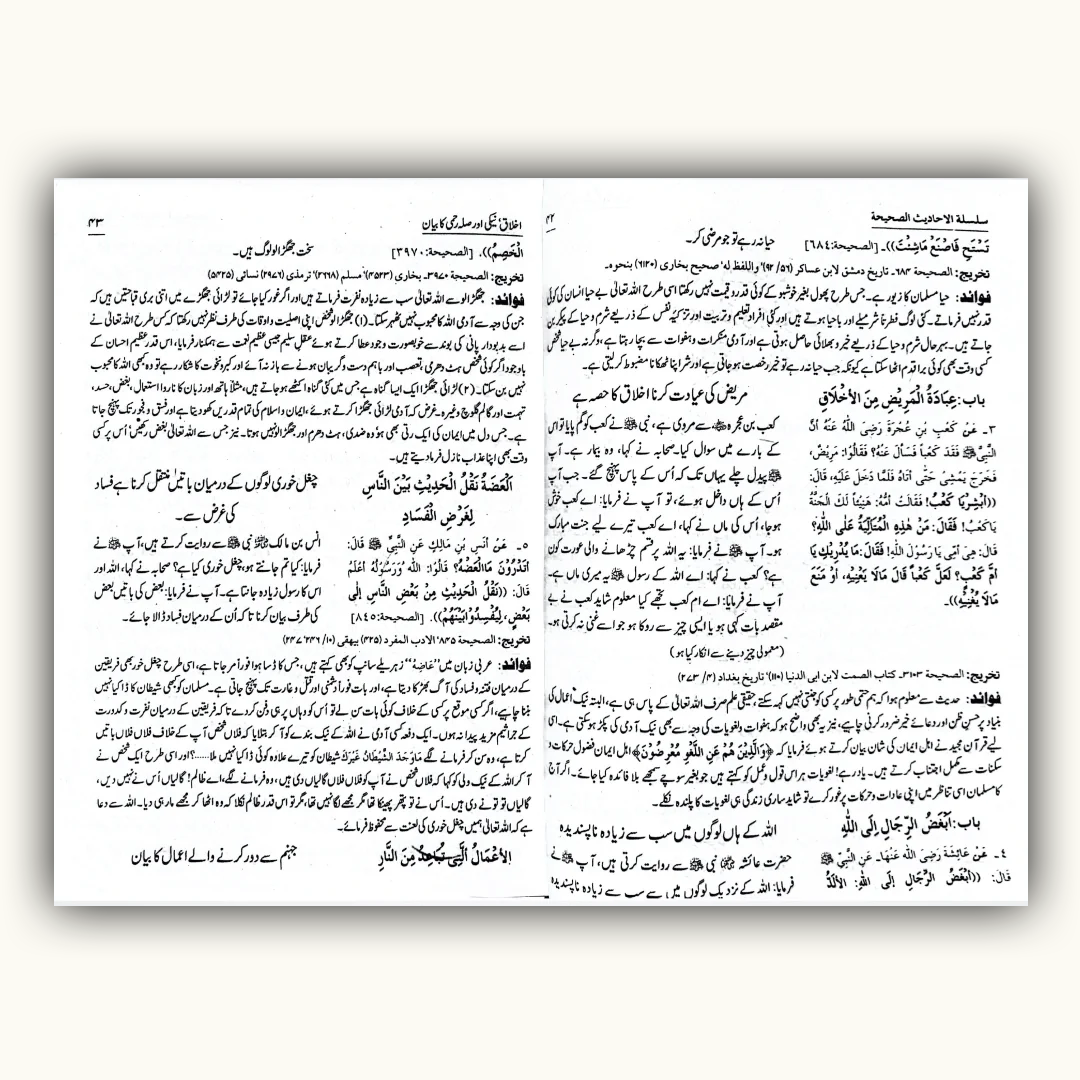 سلسلة الاحاديث الصحيحة
۴۲
تَسْتَحِ فَاصْنَعْ مَاشِئْتَ))۔ [الصحيحة:٦٨٤]
حیا نہ رہے تو جو مرضی کر۔
تخريج: الصحيحة ۶۸۴۔ تاریخ دمشق لابن عساکر (۵۶/ ۹۲)' واللفظ له' صحیح بخاری (۶۱۲۰) بنحوہ۔
فوائد: حیا مسلمان کا زیور ہے۔ جس طرح پھول بغیر خوشبو کے کوئی قدر و قیمت نہیں رکھتا اسی طرح اللہ تعالیٰ بے حیا انسان کی کوئی
قدر نہیں فرماتے۔ کئی لوگ فطرتا شرمیلے اور باحیا ہوتے ہیں اور کئی افراد تعلیم و تربیت اور تزکیہ نفس کے ذریعے شرم و حیا کے پیکر بن
جاتے ہیں۔ بہر حال شرم و حیا کے ذریعے خیر و بھلائی حاصل ہوتی ہے اور آدمی منکرات و ہفوات سے بچا رہتا ہے، وگرنہ بے حیا شخص
کسی وقت بھی کوئی برا قدم اٹھا سکتا ہے کیونکہ جب حیا نہ رہے تو خیر رخصت ہو جاتی ہے اور شر اپنا ٹھکانا مضبوط کر لیتی ہے۔
باب: عِيَادَةُ الْمَرِيْضِ مِنَ الْأَخْلَاقِ
مریض کی عیادت کرنا اخلاق کا حصہ ہے
۳۔ عَنْ كَعْبِ بْنِ عُجْرَةَ رَضِيَ اللّٰهُ عَنْهُ أَنَّ
النَّبِيَّ ﷺ فَقَدَ كَعْباً فَسَأَلَ عَنْهُ؟ فَقَالُوْا: مَرِيْضٌ،
فَخَرَجَ يَمْشِيْ حَتّٰى أَتَاهُ فَلَمَّا دَخَلَ عَلَيْهِ، قَالَ:
((أَبْشِرْيَا كَعْبُ! فَقَالَتْ أُمُّهُ: هَنِيْئاً لَكَ الْجَنَّةُ
يَاكَعْبُ! فَقَالَ: مَنْ هٰذِهِ الْمُتَأَلِّيَةُ عَلَى اللّٰهِ؟
قَالَ: هِيَ أُمِّيْ يَا رَسُوْلَ اللّٰهِ! فَقَالَ: مَا يُدْرِيْكِ يَا
أُمَّ كَعْبٍ؟ لَعَلَّ كَعْباً قَالَ مَالَا يَعْنِيْهِ، أَوْ مَنَعَ
مَالَا يُغْنِيْهِ))۔
کعب بن عجرہ ﷜ سے مروی ہے، نبی ﷺ نے کعب کو گم پایا تو اس
کے بارے میں سوال کیا۔ صحابہ نے کہا، وہ بیمار ہے۔ آپ
ﷺ پیدل چلے یہاں تک کہ اُس کے پاس پہنچ گئے۔ جب آپ
اُس کے ہاں داخل ہوئے، تو آپ نے فرمایا: اے کعب خوش
ہو جا، اُس کی ماں نے کہا، اے کعب تیرے لیے جنت مبارک
ہو۔ آپ ﷺ نے فرمایا: یہ اللہ پر قسم چڑھانے والی عورت کون
ہے؟ کعب نے کہا: اے اللہ کے رسول ﷺ یہ میری ماں ہے۔
آپ نے فرمایا: اے ام کعب تجھے کیا معلوم شاید کعب نے بے
مقصد بات کہی ہو یا ایسی چیز سے روکا ہو جو اسے غنی نہ کرتی ہو۔
(معمولی چیز دینے سے انکار کیا ہو)
تخريج: الصحيحة ۳۱۰۳۔ کتاب الصمت لابن ابی الدنیا (۱۱۰)' تاریخ بغداد (۴/ ۲۷۳)
فوائد: حدیث سے معلوم ہوا کہ ہم حتمی طور پر کسی کو جنتی نہیں کہہ سکتے، حقیقی علم صرف اللہ تعالیٰ کے پاس ہی ہے، البتہ نیک اعمال کی
بنیاد پر حسن ظن اور دعائے خیر ضرور کرنی چاہیے، نیز یہ بھی واضح ہو کہ ہفوات و لغویات کی وجہ سے بھی نیک آدمی کی پکڑ ہو سکتی ہے۔ اسی
لیے قرآن مجید نے اہل ایمان کی شان بیان کرتے ہوئے فرمایا کہ ﴿وَالَّذِيْنَ هُمْ عَنِ اللَّغْوِ مُعْرِضُوْنَ﴾ اہل ایمان فضول حرکات و
سکنات سے مکمل اجتناب کرتے ہیں۔ یاد رہے! لغویات ہر اس قول و عمل کو کہتے ہیں جو بغیر سوچے سمجھے بلا فائدہ کیا جائے۔ اگر آج
کا مسلمان اسی تناظر میں اپنی عادات و حرکات پر غور کرے تو شاید ساری زندگی ہی لغویات کا پلندہ نکلے۔
باب: أَبْغَضُ الرِّجَالِ إِلَى اللّٰهِ
اللہ کے ہاں لوگوں میں سب سے زیادہ ناپسندیدہ
٤۔ عَنْ عَائِشَةَ رَضِيَ اللّٰه عَنْهَا۔ عَنِ النَّبِيِّ ﷺ
قَالَ: ((أَبْغَضُ الرِّجَالِ إِلَى اللّٰهِ: الْأَلَدُّ
حضرت عائشہ ﷞ نبی ﷺ سے روایت کرتی ہیں، آپ ﷺ نے
فرمایا: اللہ کے نزدیک لوگوں میں سے سب سے زیادہ ناپسندیدہ
اخلاق' نیکی اور صلہ رحمی کا بیان
۴۳
الْخَصِمُ))۔ [الصحيحة:۳۹۷۰]
سخت جھگڑالو لوگ ہیں۔
تخريج: الصحيحة ۳۹۷۰۔ بخاری (۴۵۲۳)' مسلم (۲۶۶۸)' ترمذی (۲۹۷۶) نسائی (۵۴۲۵)
فوائد: جھگڑالو سے اللہ تعالیٰ سب سے زیادہ نفرت فرماتے ہیں اور اگر غور کیا جائے تو لڑائی جھگڑے میں اتنی بری قباحتیں ہیں کہ
جن کی وجہ سے آدمی اللہ کا محبوب نہیں ٹھہر سکتا۔ (۱) جھگڑالو شخص اپنی اصلیت و اوقات کی طرف نظر نہیں رکھتا کہ کس طرح اللہ تعالیٰ نے
اسے بدبودار پانی کی بوند سے خوبصورت وجود عطا کرتے ہوئے عقلِ سلیم جیسی عظیم نعمت سے ہمکنار فرمایا، اس قدر عظیم احسان کے
باوجود اگر کوئی شخص ہٹ دھرمی، تعصب اور باہم دست و گریبان ہونے سے باز نہ آئے اور کبر و نخوت کا شکار رہے تو وہ کبھی اللہ کا محبوب
نہیں بن سکتا۔ (۲) لڑائی جھگڑا ایک ایسا گناہ ہے جس میں کئی گناہ اکٹھے ہو جاتے ہیں، مثلاً ہاتھ اور زبان کا ناروا استعمال، بغض، حسد،
تہمت اور گالم گلوچ وغیرہ۔ غرض کہ آدمی لڑائی جھگڑا کرتے ہوئے، ایمان و اسلام کی تمام قدریں کھو دیتا ہے اور فسق و فجور تک پہنچ جاتا
ہے۔ جس دل میں ایمان کی ایک رتی بھی ہو وہ ضدی، ہٹ دھرم اور جھگڑالو نہیں ہوتا۔ نیز جس سے اللہ تعالیٰ بغض رکھیں' اُس پر کسی
وقت بھی اپنا عذاب نازل فرما دیتے ہیں۔
الْعَضَةُ نَقْلُ الْحَدِيْثِ بَيْنَ النَّاسِ
لِغَرَضِ الْفَسَادِ
چغل خوری لوگوں کے درمیان باتیں منتقل کرنا ہے فساد
کی غرض سے۔
٥۔ عَنْ أَنَسِ بْنِ مَالِكٍ عَنِ النَّبِيِّ ﷺ قَالَ:
أَتَدْرُوْنَ مَاالْعَضْهُ؟ قَالُوْا: اللّٰهُ وَرَسُوْلُهُ أَعْلَمُ
قَالَ: ((نَقْلُ الْحَدِيْثِ مِنْ بَعْضِ النَّاسِ إِلٰى
بَعْضٍ، لِيُفْسِدُوْابَيْنَهُمْ))۔ [الصحيحة:٨٤٥]
انس بن مالک ﷜ نبی ﷺ سے روایت کرتے ہیں، آپ ﷺ نے
فرمایا: کیا تم جانتے ہو، چغل خوری کیا ہے؟ صحابہ نے کہا، اللہ اور
اس کا رسول زیادہ جانتا ہے۔ آپ نے فرمایا: بعض کی باتیں بعض
کی طرف بیان کرنا تا کہ اُن کے درمیان فساد ڈالا جائے۔
تخريج: الصحيحة ۸۴۵۔ الادب المفرد (۴۲۵) بیهقی (۱۰/ ۲۴۶' ۲۴۷)
فوائد: عربی زبان میں ''عَاضِهٌ'' زہریلے سانپ کو بھی کہتے ہیں، جس کا ڈسا ہوا فوراً مر جاتا ہے، اسی طرح چغل خور بھی فریقین
کے درمیان فتنہ و فساد کی آگ بھڑکا دیتا ہے، اور بات فوراً دشمنی اور قتل و غارت تک پہنچ جاتی ہے۔ مسلمان کو کبھی شیطان کا ڈاکیا نہیں
بننا چاہیے، اگر کسی موقع پر کسی کے خلاف کوئی بات سن لے تو اُس کو وہاں پر ہی دفن کر دے تا کہ فریقین کے درمیان نفرت و کدورت
کے جراثیم مزید پیدا نہ ہوں۔ ایک دفعہ کسی آدمی نے اللہ کے نیک بندے کو آ کر بتلایا کہ فلاں شخص آپ کے خلاف فلاں فلاں باتیں
کرتا ہے، وہ سن کر فرمانے لگے مَاوَجَدَ الشَّيْطَانُ غَيْرَكَ شیطان کو تیرے علاوہ کوئی ڈاکیا نہیں ملا......؟! اور اسی طرح ایک شخص نے
آ کر اللہ کے نیک ولی کو کہا کہ فلاں شخص نے آپ کو فلاں فلاں گالیاں دی ہیں، وہ فرمانے لگے، اے ظالم! گالیاں اُس نے نہیں دیں،
گالیاں تو تو نے دی ہیں۔ اُس نے تو پتھر پھینکا تھا مگر مجھے لگا نہیں تھا، مگر تو اس قدر ظالم نکلا کہ وہ اٹھا کر مجھے مار ہی دیا۔ اللہ سے دعا
ہے کہ اللہ تعالیٰ ہمیں چغل خوری کی لعنت سے محفوظ فرمائے۔
الأعْمَالُ الَّتِيْ تُبَاعِدُ مِنَ النَّارِ
جہنم سے دور کرنے والے اعمال کا بیان